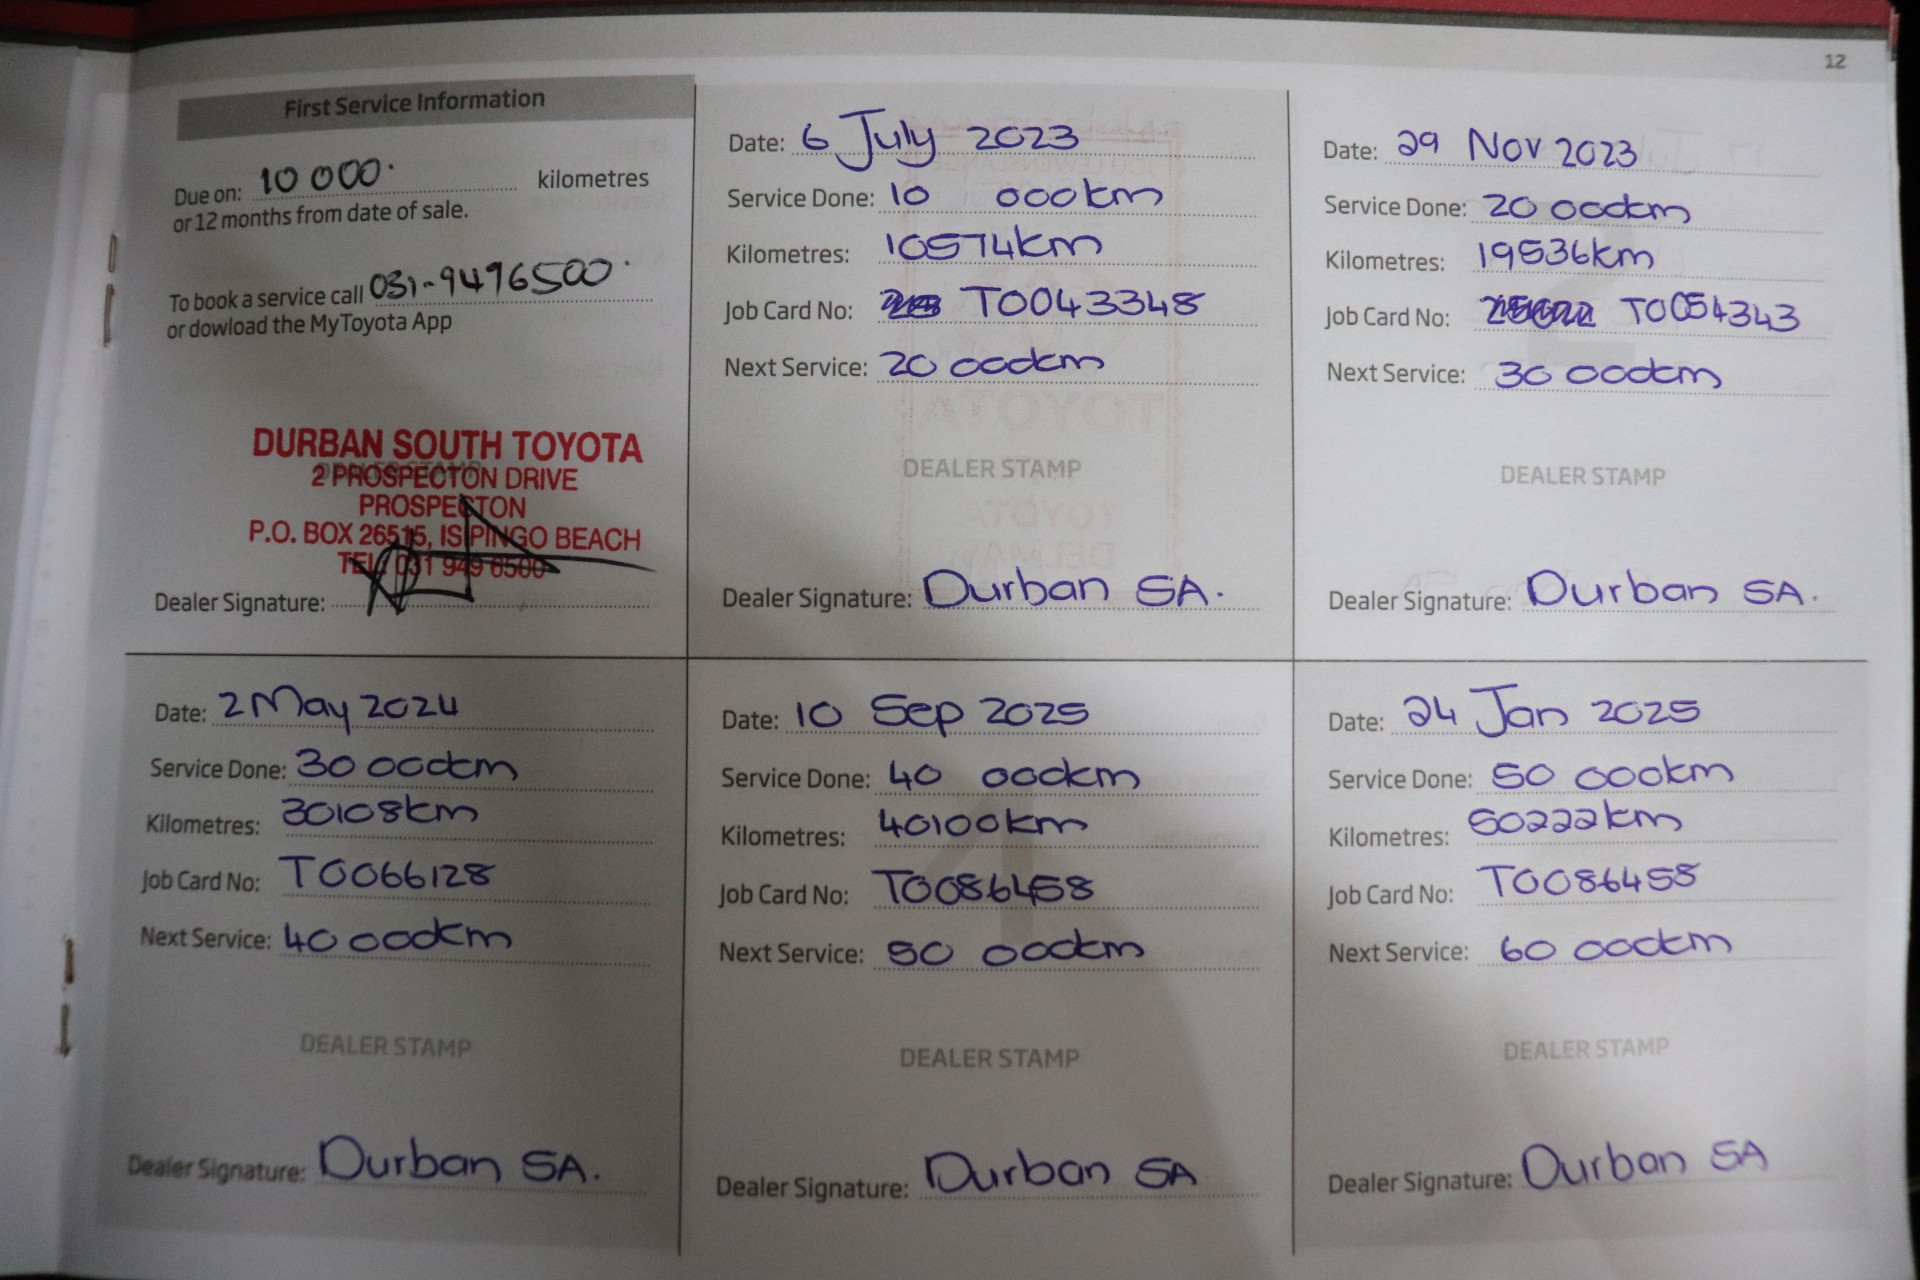 12
First Service Information
Due on: 10 000. kilometres
or 12 months from date of sale.
To book a service call 031-9496500.
or dowload the MyToyota App
DURBAN SOUTH TOYOTA
DEALER STAMP
2 PROSPECTON DRIVE
PROSPECTON
P.O. BOX 26515, ISIPINGO BEACH
TEL: 031 949 6500
Dealer Signature:
Date: 6 July 2023
Service Done: 10 000km
Kilometres: 10574km
Job Card No: T0043348
Next Service: 20 000km
DEALER STAMP
Dealer Signature: Durban SA.
Date: 29 Nov 2023
Service Done: 20 000km
Kilometres: 19536km
Job Card No: T0054343
Next Service: 30 000km
DEALER STAMP
Dealer Signature: Durban SA.
Date: 2 May 2024
Service Done: 30 000km
Kilometres: 30108km
Job Card No: T0066128
Next Service: 40 000km
DEALER STAMP
Dealer Signature: Durban SA.
Date: 10 Sep 2025
Service Done: 40 000km
Kilometres: 40100km
Job Card No: T0086458
Next Service: 50 000km
DEALER STAMP
Dealer Signature: Durban SA
Date: 24 Jan 2025
Service Done: 50 000km
Kilometres: 50222km
Job Card No: T0086458
Next Service: 60 000km
DEALER STAMP
Dealer Signature: Durban SA